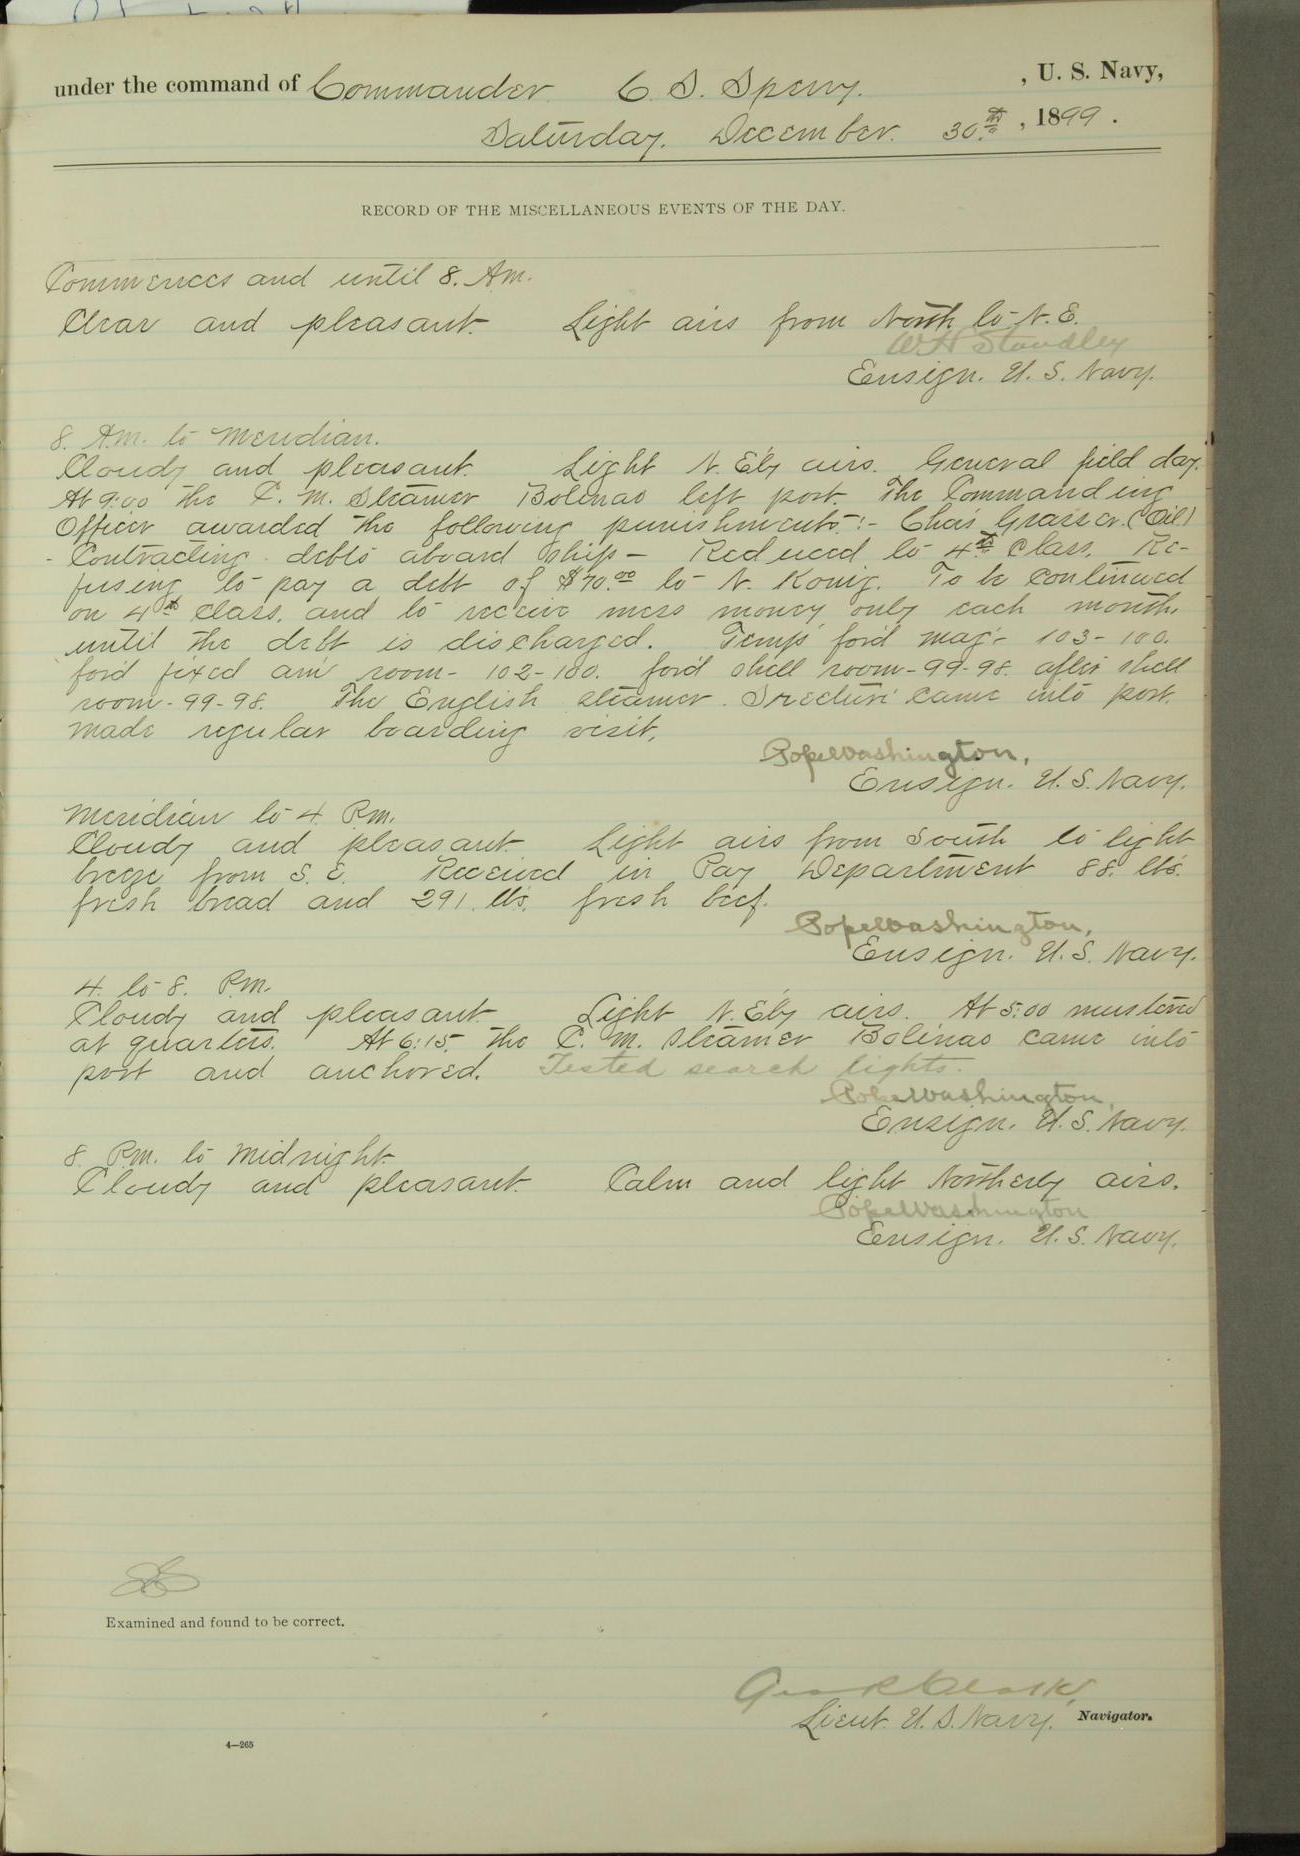 under the command of Commander C. S. Sperry. , U. S. Navy,
Saturday, December. 30th , 1899 .
RECORD OF THE MISCELLANEOUS EVENTS OF THE DAY.
Commences and until 8. Am.
Clear and pleasant. Light airs from North to N. E.
W H Standley
Ensign. U. S. Navy.
8. A.m. to Meridian.
Cloudy and pleasant. Light N. E'ly airs. General field day.
At 9:00 the C. M. Steamer Bolinao left port. The Commanding
Officer awarded the following punishments:- Chas. Grasser. (Oil)
- Contracting debts aboard ship - Reduced to 4th class. Re-
fusing to pay a debt of $70.00 to N. Konig. To be continued
on 4th class. and to receive mess money only each month.
until the debt is discharged. Temps for'd mag'- 103-100.
for'd fixed am' room- 102-100. for'd shell room-99-98. after shell
room-99-98. The English steamer came into port.
made regular boarding visit.
Pope Washington,
Ensign. U. S. Navy.
Meridian to 4 P.m.
Cloudy and pleasant. Light airs from South to light
breeze from S. E. Received in Pay Department 88. lbs.
fresh bread and 291. lbs. fresh beef.
Pope Washington,
Ensign. U. S. Navy.
4. to 8. P.m.
Cloudy and pleasant. Light N. E'ly airs. At 5:00 mustered
at quarters. At 6:15. the C. M. Steamer Bolinao came into
port and anchored. Tested search lights.
Pope Washington,
Ensign. U. S. Navy.
8. P.m. to Midnight.
Cloudy and pleasant. Calm and light Northerly airs.
Pope Washington
Ensign. U. S. Navy.
Examined and found to be correct.
Geo R Clark,
Lieut. U. S. Navy. Navigator.
4—265